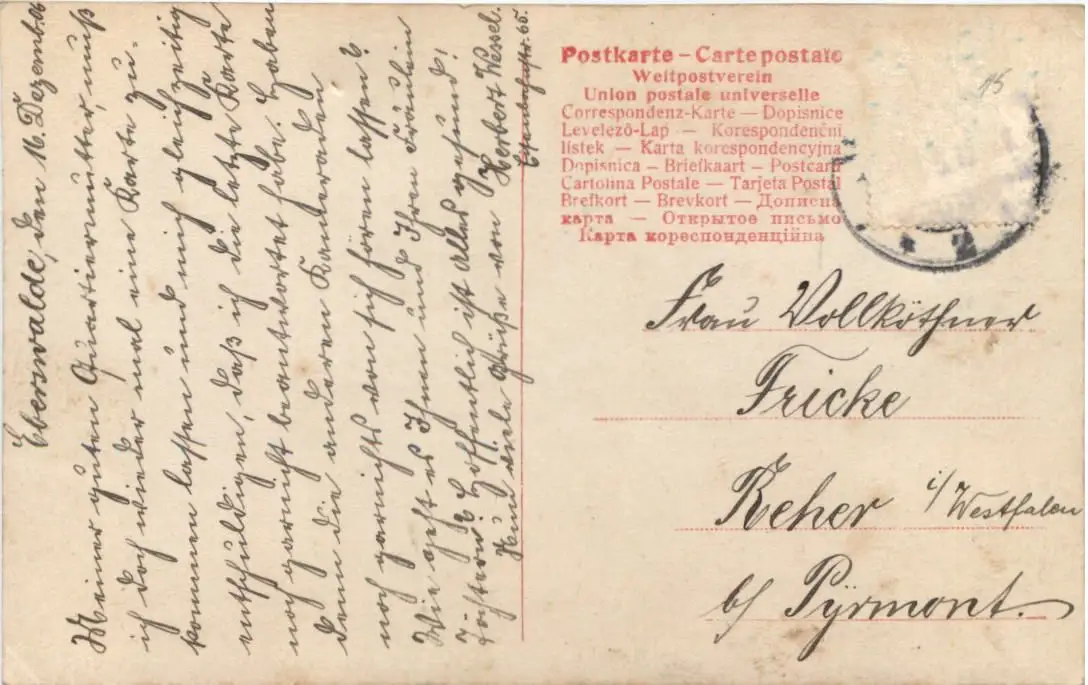 Eberswalde, den 16. Dezemb. 06
Meiner guten Quartiermutter, muß
ich doch wieder mal eine Karte zu-
kommen lassen und mich gleichzeitig
entschuldigen, daß ich die letzte Karte
noch garnicht beantwortet habe. Haben
denn die anderen Kameraden
noch garnichts von sich hören lassen?
Wie geht es Ihnen und Ihren Fräulein
Töchtern? Hoffentlich ist alles gesund!
Nun viele Grüße von Herbert Wessel.
Eisenbahnstr. 65.
Postkarte – Carte postale
Weltpostverein
Union postale universelle
Correspondenz-Karte — Dopisnice
Levelező-Lap — Korespondenční
lístek — Karta korespondencyjna
Dopisnica — Briefkaart — Postcard
Cartolina Postale — Tarjeta Postal
Brefkort — Brevkort — Дописна
карта — Открытое письмо
Карта кореспонденційна
Frau Vollköthner
Fricke
Reher i/Westfalen
b/ Pyrmont.